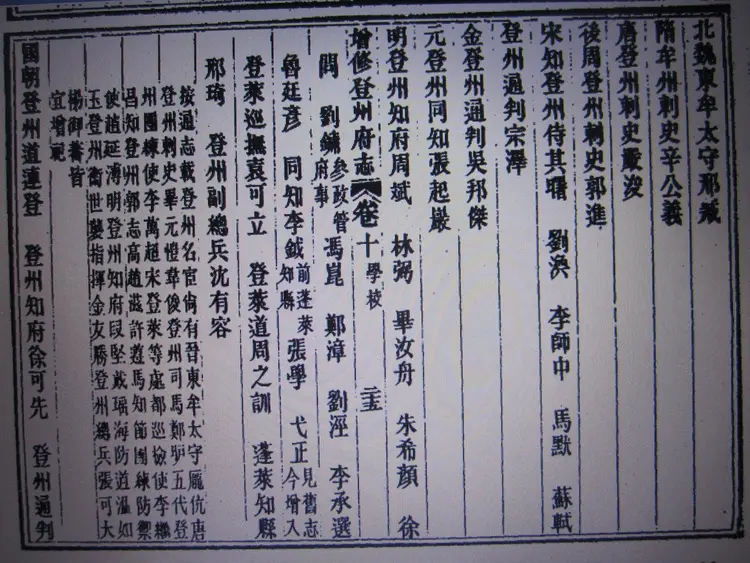 北魏東牟太守邢臧
隋牟州刺史辛公義
唐登州刺史嚴浚
後周登州刺史郭進
宋知登州侍其曙 劉渙 李師中 馬默 蘇軾
登州通判宗澤
金登州通判吳邦傑
元登州同知張起巖
明登州知府周斌 林弼 畢汝舟 朱希顏 徐
增修登州府志 卷十 學校
閻 劉鏞參政管府事 馮崑 鄭漳 劉涇 李承選
魯廷彥 同知李鉞前蓬萊知縣 張學 弋正見舊志今增入
登萊巡撫袁可立 登萊道周之訓 蓬萊知縣
邢琦 登州副總兵沈有容
按通志載登州名宦尚有晉東牟太守龐伉唐
登州刺史畢元愷韋俊登州司馬鄭馿五代登
州團練使李萬超宋登萊等處都巡檢使李繼
昌知登州郭志高趙滋許遵馬知節團練防禦
使趙延溥明登州知府段堅戴瑶海防道溫如
玉登州衛世襲指揮金友勝登州總兵張可大
楊御蕃皆
宜增祀
國朝登州道連登 登州知府徐可先 登州通判